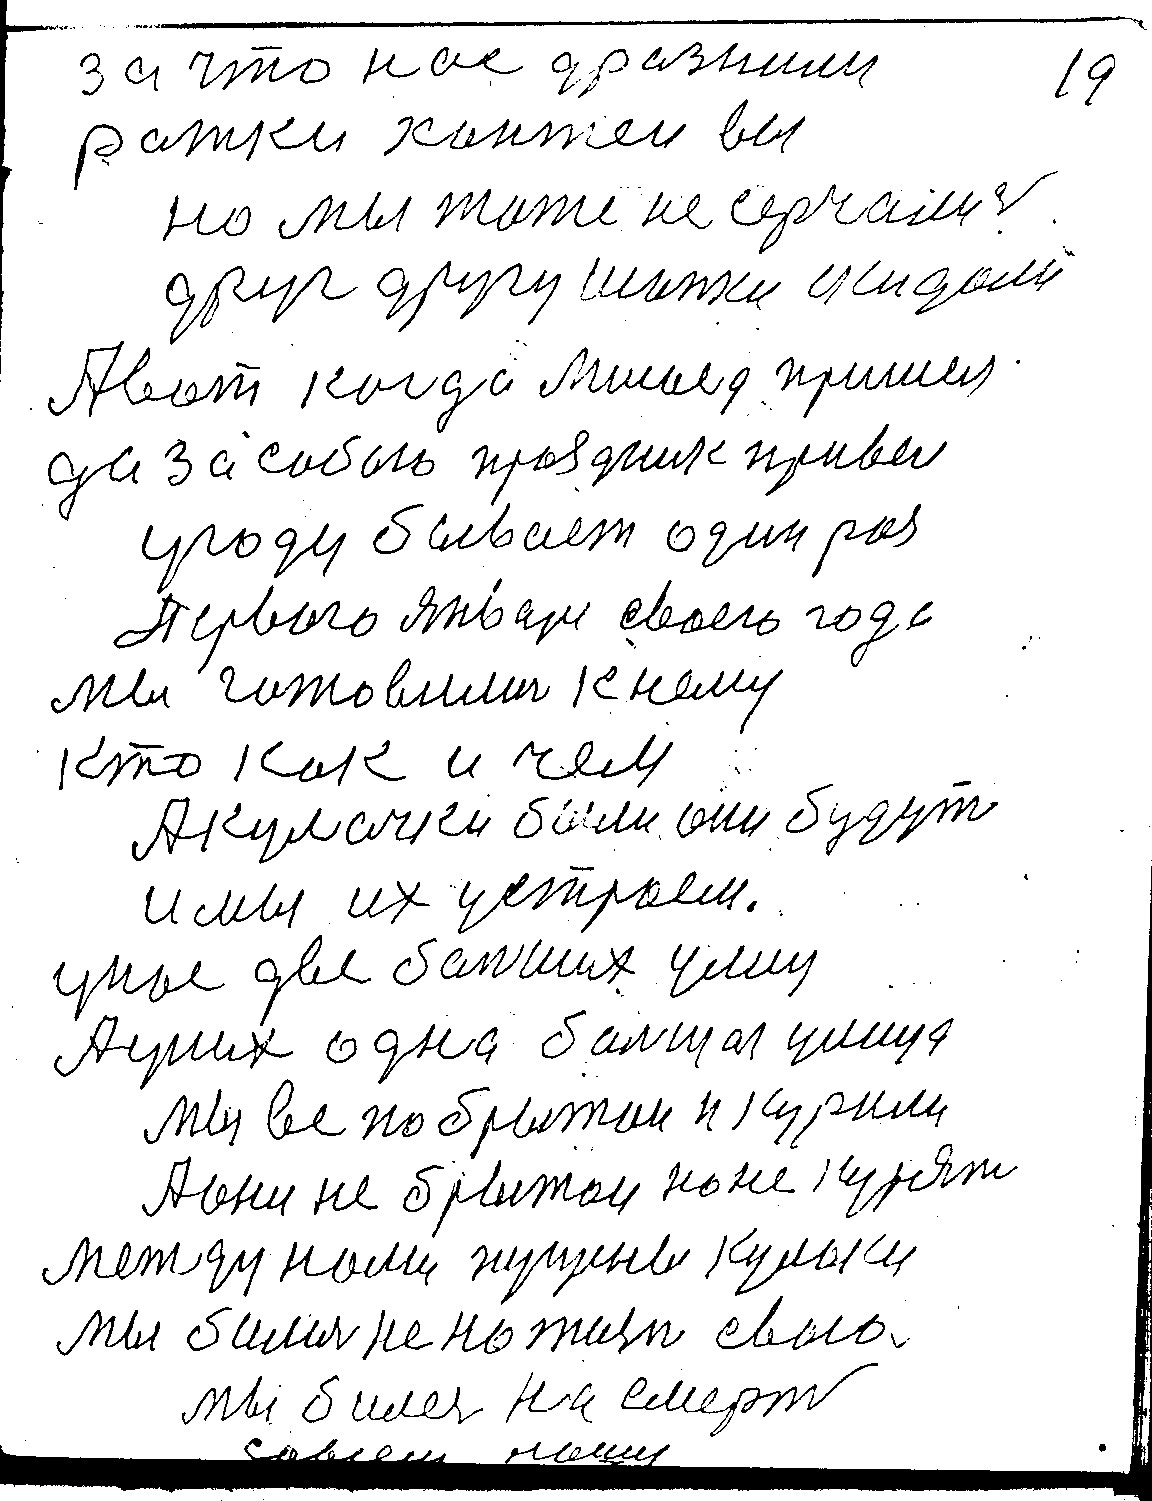 за что нас дразнили 19
ратки хонжеи вы
но мы тоже не серчали
друг другу шапки кидали
А вот когда Мишаед пришел
да за собою праздник привел
угоду бывает один раз
Первого Января своего года
мы готовились к нему
кто как и чем
А кулачки были они будут
и мы их устроем.
у нас две больших улиц
А у них одна большая улица
мы все по брытой и курили
А они не брытои но не курят
между нами пущены кулаки
мы билися не на жизн свою
мы билися на смерт
совсем нашу